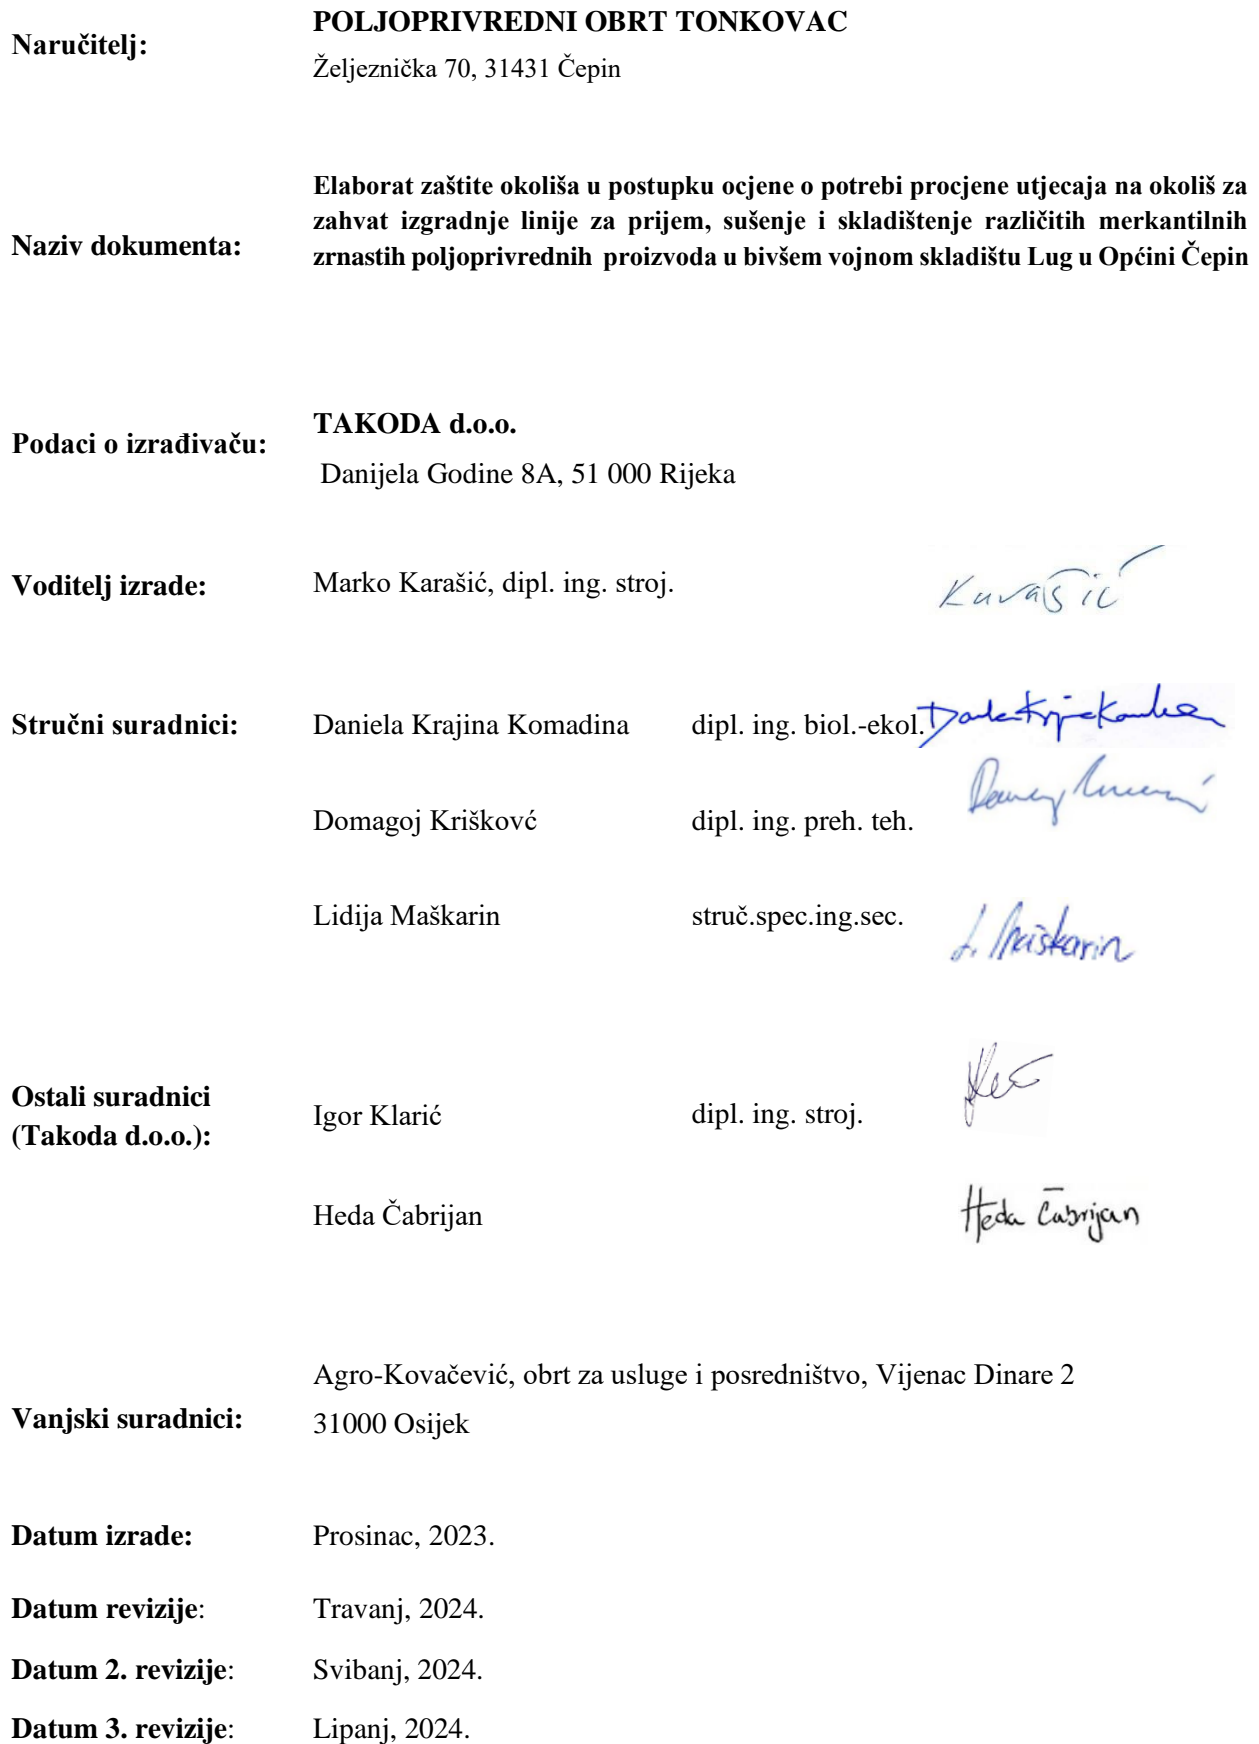 Naručitelj:
POLJOPRIVREDNI OBRT TONKOVAC
Željeznička 70, 31431 Čepin
Naziv dokumenta:
Elaborat zaštite okoliša u postupku ocjene o potrebi procjene utjecaja na okoliš za
zahvat izgradnje linije za prijem, sušenje i skladištenje različitih merkantilnih
zrnastih poljoprivrednih proizvoda u bivšem vojnom skladištu Lug u Općini Čepin
Podaci o izrađivaču:
TAKODA d.o.o.
Danijela Godine 8A, 51 000 Rijeka
Voditelj izrade: Marko Karašić, dipl. ing. stroj. Karašić
Stručni suradnici: Daniela Krajina Komadina dipl. ing. biol.-ekol.
Domagoj Kriškovć dipl. ing. preh. teh.
Lidija Maškarin struč.spec.ing.sec. L. Maškarin
Ostali suradnici
(Takoda d.o.o.):
Igor Klarić dipl. ing. stroj.
Heda Čabrijan Heda Čabrijan
Vanjski suradnici:
Agro-Kovačević, obrt za usluge i posredništvo, Vijenac Dinare 2
31000 Osijek
Datum izrade: Prosinac, 2023.
Datum revizije: Travanj, 2024.
Datum 2. revizije: Svibanj, 2024.
Datum 3. revizije: Lipanj, 2024.